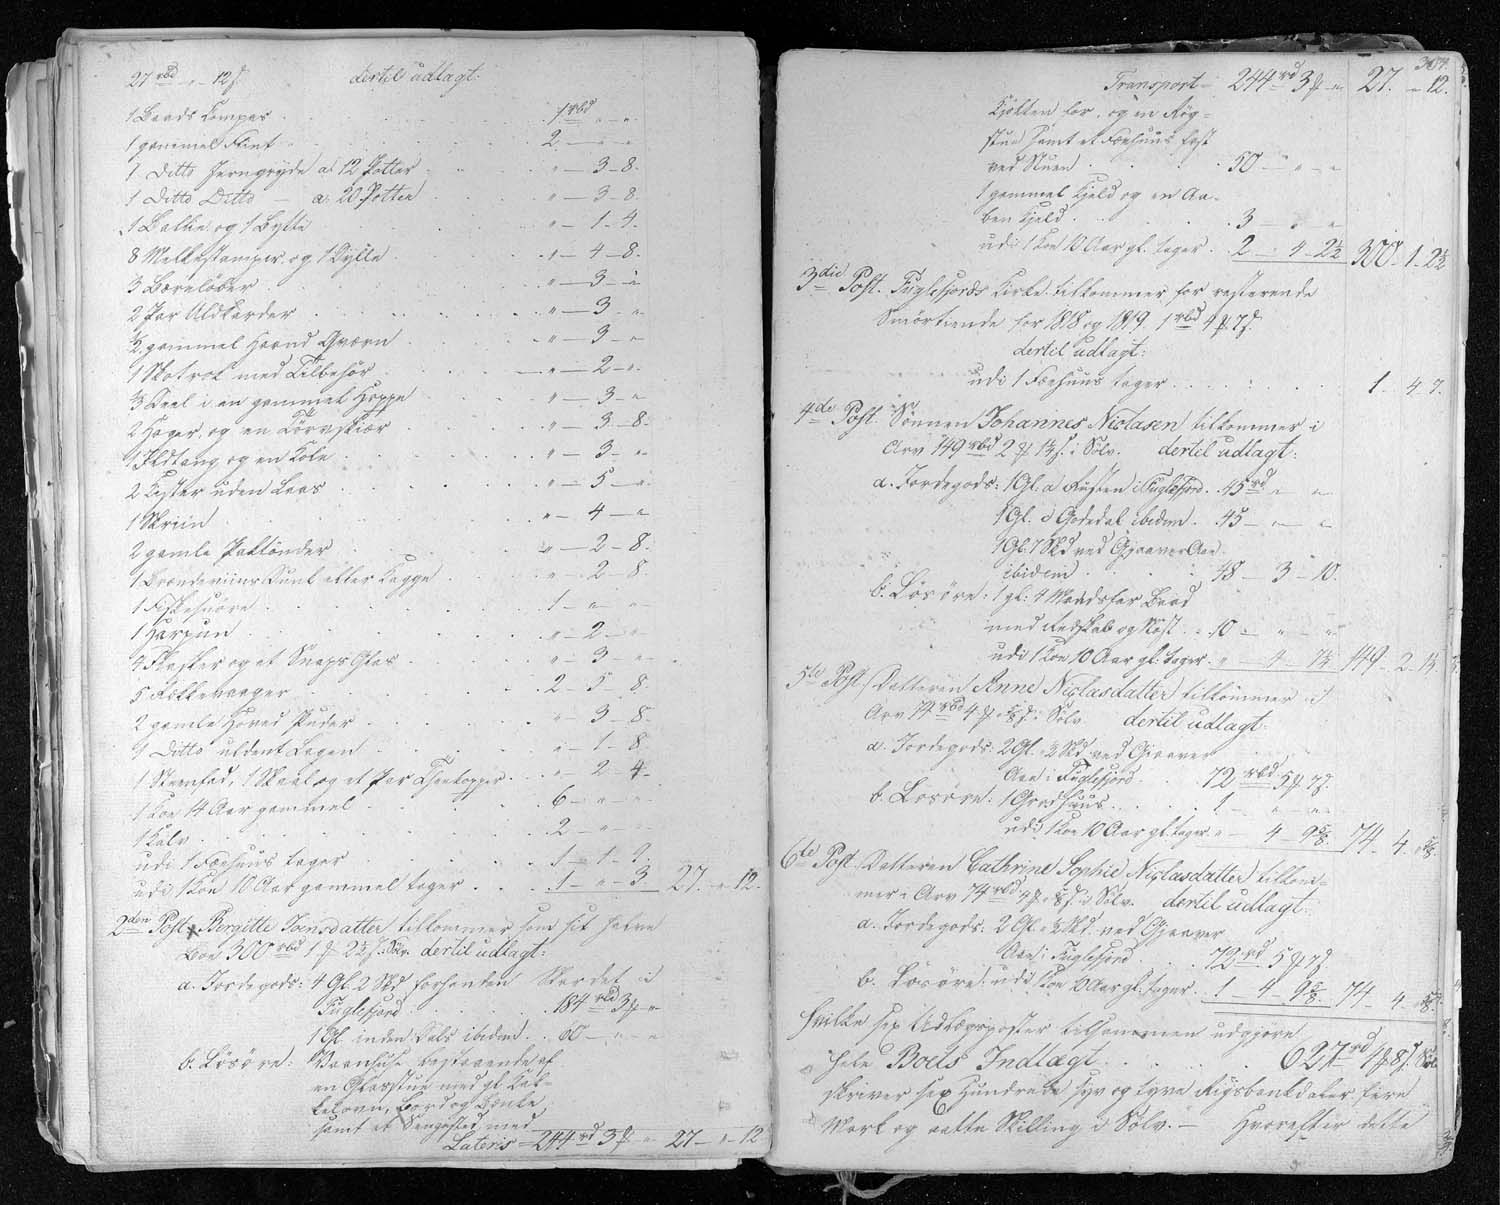 27 rbd " 12 s. dertil udlagt:
1 Baads Compas . . . 1 rbd " "
1 gammel Flint . . . 2 — " "
1 Ditto Jerngryde a 12 Potter . . " — 3 — 8.
1 Ditto Ditto — a 20 Potter . . " — 3 — 8.
1 Balke og 1 Bytte . . " — 1 — 4.
8 Melkestamper og 1 Dylle . . " — 4 — 8.
3 Bæreløber . . " — 3 — "
2 Par Uldkarder . . " — 3 — "
1/2 gammel Haand Qværn . . " — 3 — "
1 Skotrok med Tilbehør . . " — 2 — "
3 Deel i en gammel Hoppe . . " — 3 — "
2 Hager og en Tørvskiær . . " — 3 — 8.
1 Ildtang og en Kole . . " — 3 — "
2 Kister uden Laas . . " — 5 — "
1 Skriin . . " — 4 — "
2 gamle Saltönder . . " — 2 — 8.
1 Brændeviins Punt eller Kagge . . " — 2 — 8.
1 Fiskesnöre . . 1 — " — "
1 Harpun . . " — 2 — "
4 Flasker og et Snaps Glas . . " — 3 — "
5 Fækkevaager . . 2 — 5 — 8.
2 gamle Hoved Puder . . " — 3 — 8.
1 Ditto uldent Lagen . . " — 1 — 8.
1 Steenfad, 1 Skaal og et Par Theekopper . . " — 2 — 4.
1 Koe 14 Aar gammel . . 6 — " — "
1 Kalv . . 2 — " — "
udi 1 Fæehuus tager . . 1 — 1 — 9.
udi 1 Koe 10 Aar gammel tager . . 1 — " — 3. 27. " 12.
2den Post Bergitte Joensdatter tilkommer som sit halve
Boe 300 rbd 1 f 2 1/2 s. Sölv. dertil udlagt:
a. Jordegods: 4 Gl. 2 Skd forhenden Skerdet i
Fuglefjord . . 184 rbd 3 f "
1 Gl. inden Dals ibidem . 60 — " — "
b. Lösöre: Vaanhuse bestaaende af
en Glasstue med gl. Kak-
kelovn, Bord og Bænke,
samt et Sengested med
Lateris = 244 rd 3 f " 27 — " 12
304.
Transport = 244 rd 3 f " 27. " 12.
Kjolten for, og en Rög-
stue samt et Fæehuus fast
ved Stuen . . 50 — " — "
1 gammel Hjeld og en Aa-
ben Hjeld . . 3 — " — "
udi 1 Koe 10 Aar gl. tager . 2 — 4 — 2 1/2 300 — 1 — 2 1/2
3die Post. Fuglefjords Kirke tilkommer for resterende
Smörtiende for 1818 og 1819. 1 rbd 4 f 7 s.
dertil udlagt:
udi 1 Fæehuus tager . . 1 — 4 — 7.
4de Post. Sönnen Johannes Niclasen tilkommer i
Arv 149 rbd 2 f 1 1/4 s. i Sölv. dertil udlagt:
a. Jordegods: 1 Gl. a Rusten i Fuglefjord . 45 rd " "
1 Gl. i Gededal ibidem . 45 — " — "
1 Gl. 7 Skd ved Gjaaver Aae
ibidem . . 48 — 3 — 10.
b. Lösöre: 1 gl. 4 Mandsfar Baad
med Redskab og Nöst . 10 — " — "
udi 1 Koe 10 Aar gl. tager . " — 4 — 7 1/4 149 — 2 — 1 1/4
5te Post. Datteren Anne Niclasdatter tilkommer i
Arv 74 rbd 4 f 5/8 s. i Sölv dertil udlagt:
a. Jordegods: 2 Gl. 1/2 Skd ved Gjaaver
Aae i Fuglefjord . 72 rbd 5 f 7 s.
b. Lösöre: 1 Grodhuus . . 1 — " — "
udi 1 Koe 10 Aar gl. tager . " — 4 — 9 5/8. 74 — 4 . " 5/8.
6te Post. Datteren Cathrine Sophie Niclasdatter tilkom-
mer i Arv 74 rbd 4 f 5/8 s. i Sölv. dertil udlagt:
a. Jordegods: 2 Gl. 1/2 Skd. ved Gjaaver
Aae i Fuglefjord . . 72 rd 5 f 7 s.
b. Lösöre: udi 1 Koe 10 Aar gl. tager . 1 — 4 — 9 5/8. 74 — 4 — " 5/8.
Hvilke sex Udlægsposter tilsammen udgjöre
hele Boets Indlægt . . 627 rd 4 f 8 s. Sölv
skriver sex Hundrede syv og tyve Rigsbankdaler fire
Mark og aatte Skilling i Sölv. — Hvorefter dette